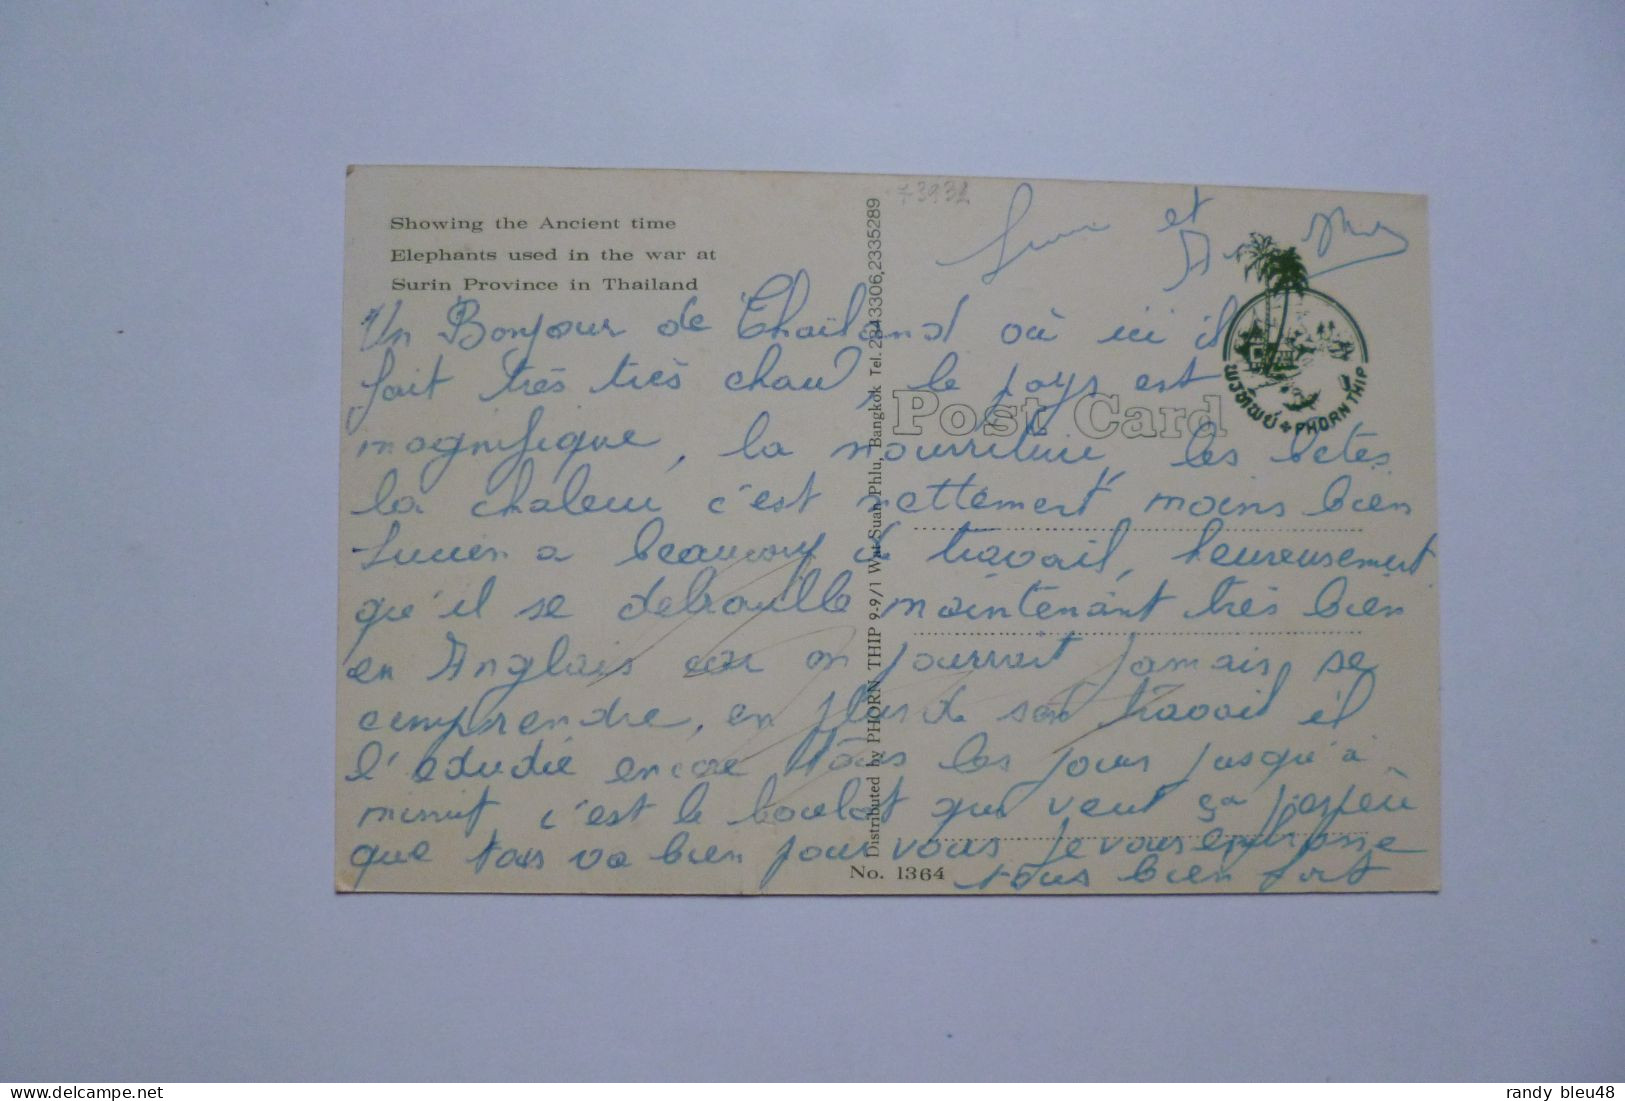 Showing the Ancient time
Elephants used in the war at
Surin Province in Thailand
73932
et
Un Bonjour de Thaïland où ici il
fait très très chaud, le pays est
magnifique, la nourriture, les bêtes
la chaleur c'est nettement moins bien
Lucien a beaucoup de travail, heureusement
qu'il se debrouille maintenant très bien
en Anglais car on pourrait jamais se
comprendre, en plus de son travail il
l'étudie encore tous les jours jusqu'à
minuit c'est le boulot qui veut ça j'espère
que tous va bien pour vous je vous embrasse
tous bien fort
Post Card
พรทิพย์ PHORN THIP
Distributed by PHORN THIP 9-9/1 Wat Suan Phlu, Bangkok Tel. 2343306,2335289
No. 1364
randy bleu48